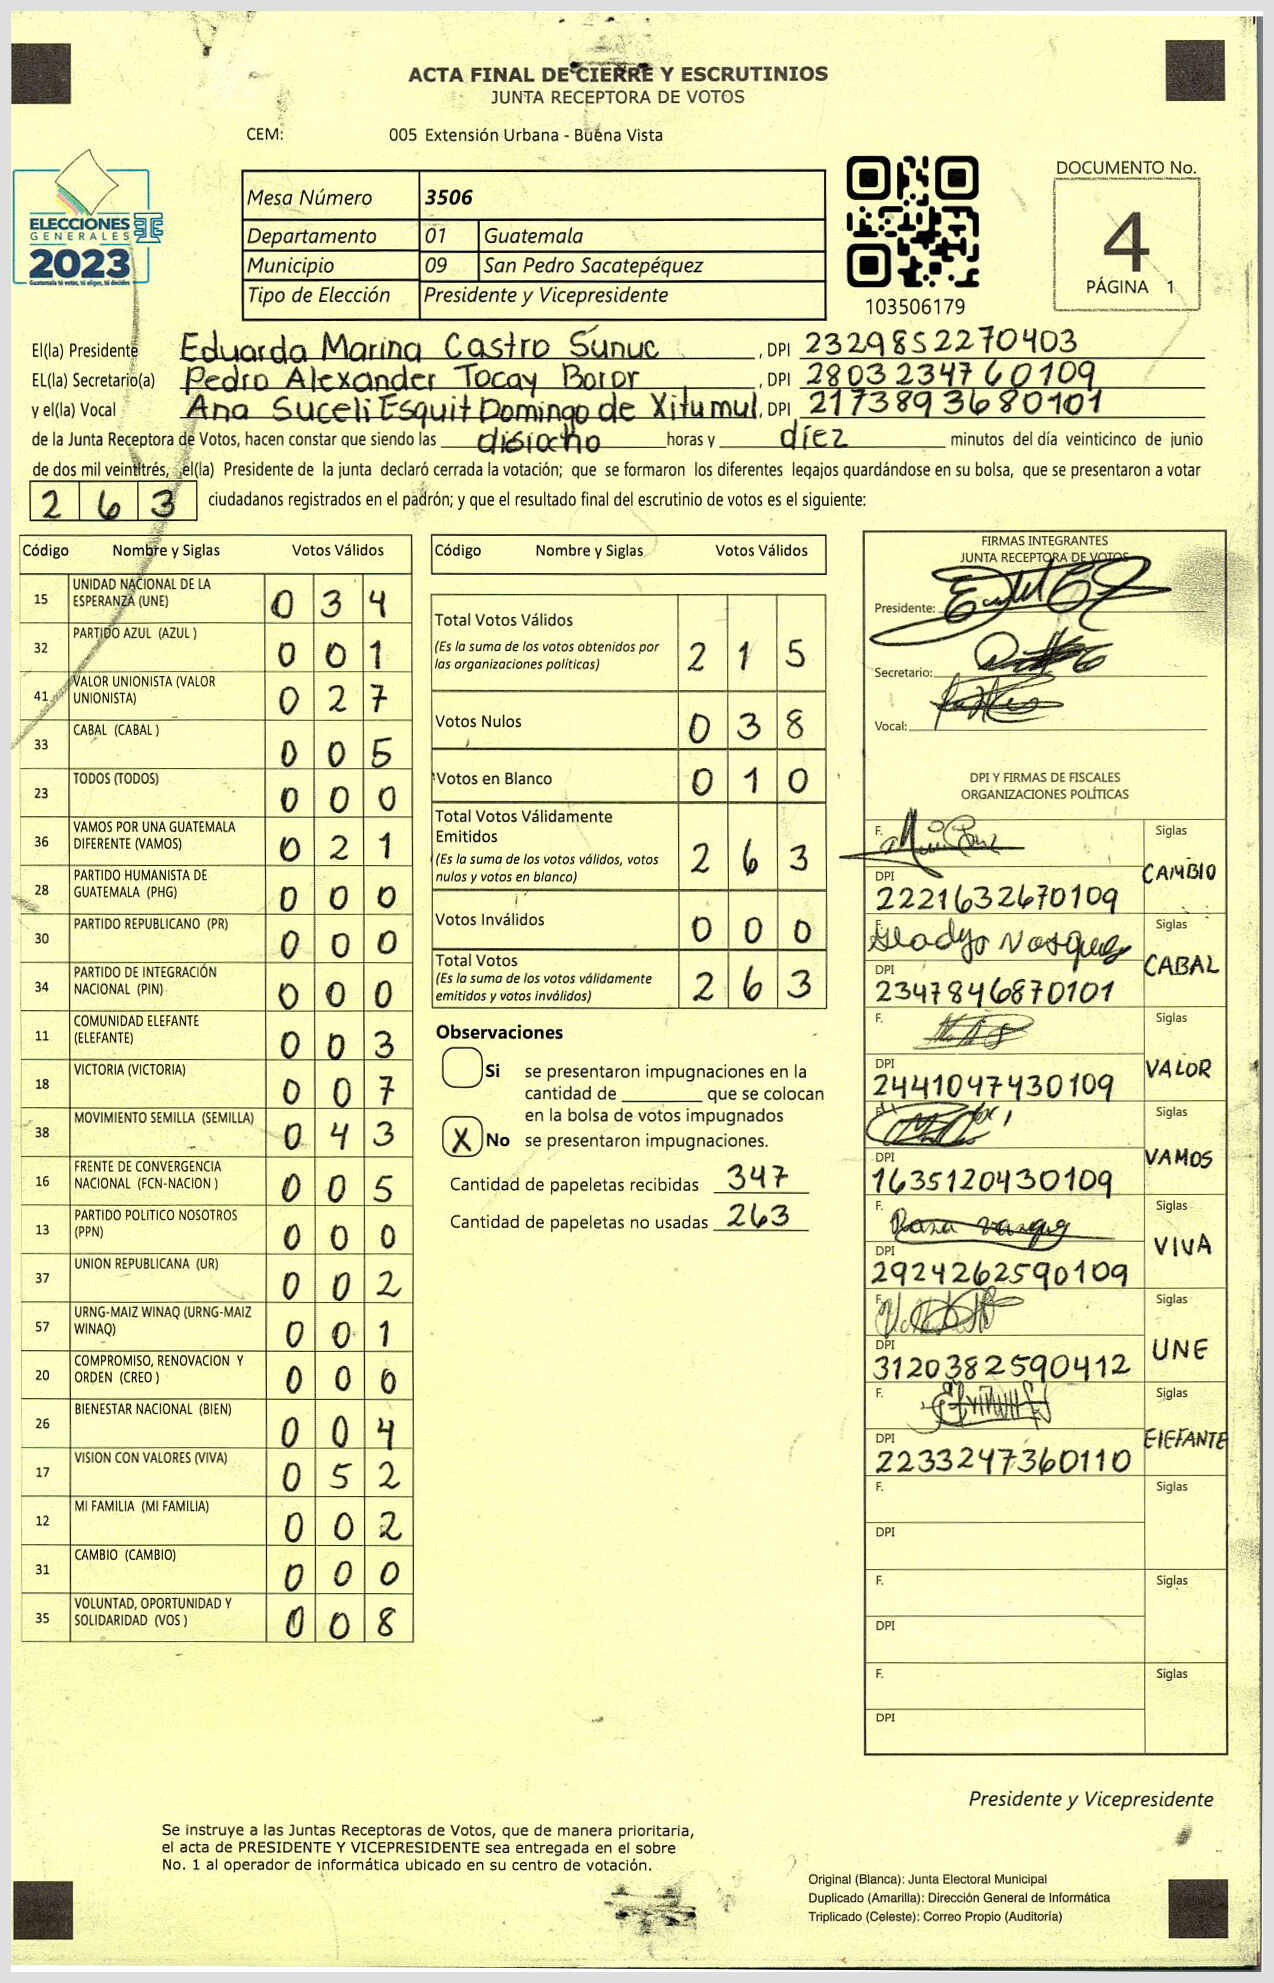 ACTA FINAL DE CIERRE Y ESCRUTINIOS
JUNTA RECEPTORA DE VOTOS
CEM: 005 Extensión Urbana - Buena Vista
ELECCIONES
GENERALES
2023
Guatemala tú votas, tú eliges, tú decides
Mesa Número 3506
Departamento 01 Guatemala
Municipio 09 San Pedro Sacatepéquez
Tipo de Elección Presidente y Vicepresidente
103506179
DOCUMENTO No.
4
PÁGINA 1
El(la) Presidente Eduarda Marina Castro Sunuc, DPI 2329852270403
EL(la) Secretario(a) Pedro Alexander Tocay Boror, DPI 2803234760109
y el(la) Vocal Ana Suceli Esquit Domingo de Xitumul, DPI 2173893680101
de la Junta Receptora de Votos, hacen constar que siendo las disiocho horas y díez minutos del día veinticinco de junio
de dos mil veintitrés, el(la) Presidente de la junta declaró cerrada la votación; que se formaron los diferentes legajos quardándose en su bolsa, que se presentaron a votar
263 ciudadanos registrados en el padrón; y que el resultado final del escrutinio de votos es el siguiente:
Código Nombre y Siglas Votos Válidos
15 UNIDAD NACIONAL DE LA ESPERANZA (UNE) 034
32 PARTIDO AZUL (AZUL ) 001
41 VALOR UNIONISTA (VALOR UNIONISTA) 027
33 CABAL (CABAL ) 005
23 TODOS (TODOS) 000
36 VAMOS POR UNA GUATEMALA DIFERENTE (VAMOS) 021
28 PARTIDO HUMANISTA DE GUATEMALA (PHG) 000
30 PARTIDO REPUBLICANO (PR) 000
34 PARTIDO DE INTEGRACIÓN NACIONAL (PIN) 000
11 COMUNIDAD ELEFANTE (ELEFANTE) 003
18 VICTORIA (VICTORIA) 007
38 MOVIMIENTO SEMILLA (SEMILLA) 043
16 FRENTE DE CONVERGENCIA NACIONAL (FCN-NACION ) 005
13 PARTIDO POLITICO NOSOTROS (PPN) 000
37 UNION REPUBLICANA (UR) 002
57 URNG-MAIZ WINAQ (URNG-MAIZ WINAQ) 001
20 COMPROMISO, RENOVACION Y ORDEN (CREO ) 000
26 BIENESTAR NACIONAL (BIEN) 004
17 VISION CON VALORES (VIVA) 052
12 MI FAMILIA (MI FAMILIA) 002
31 CAMBIO (CAMBIO) 000
35 VOLUNTAD, OPORTUNIDAD Y SOLIDARIDAD (VOS ) 008
Código Nombre y Siglas Votos Válidos
Total Votos Válidos 215
(Es la suma de los votos obtenidos por
las organizaciones políticas)
Votos Nulos 038
Votos en Blanco 010
Total Votos Válidamente
Emitidos 263
(Es la suma de los votos válidos, votos
nulos y votos en blanco)
Votos Inválidos 000
Total Votos 263
(Es la suma de los votos válidamente
emitidos y votos inválidos)
Observaciones
Si se presentaron impugnaciones en la
cantidad de ________ que se colocan
en la bolsa de votos impugnados
X No se presentaron impugnaciones.
Cantidad de papeletas recibidas 347
Cantidad de papeletas no usadas 263
FIRMAS INTEGRANTES
JUNTA RECEPTORA DE VOTOS
Presidente:
Secretario:
Vocal:
DPI Y FIRMAS DE FISCALES
ORGANIZACIONES POLÍTICAS
F. Siglas
DPI CAMBIO
2221632670109
F. Gladys Vasquez Siglas
DPI CABAL
2347846870101
F. Siglas
DPI VALOR
2441047430109
F. Siglas
DPI VAMOS
1635120430109
F. Rosa Vasquez Siglas
DPI VIVA
2924262590109
F. Siglas
DPI UNE
3120382590412
F. Siglas
DPI ElEFANTE
2233247360110
F. Siglas
DPI
F. Siglas
DPI
F. Siglas
DPI
Presidente y Vicepresidente
Se instruye a las Juntas Receptoras de Votos, que de manera prioritaria,
el acta de PRESIDENTE Y VICEPRESIDENTE sea entregada en el sobre
No. 1 al operador de informática ubicado en su centro de votación.
Original (Blanca): Junta Electoral Municipal
Duplicado (Amarilla): Dirección General de Informática
Triplicado (Celeste): Correo Propio (Auditoría)